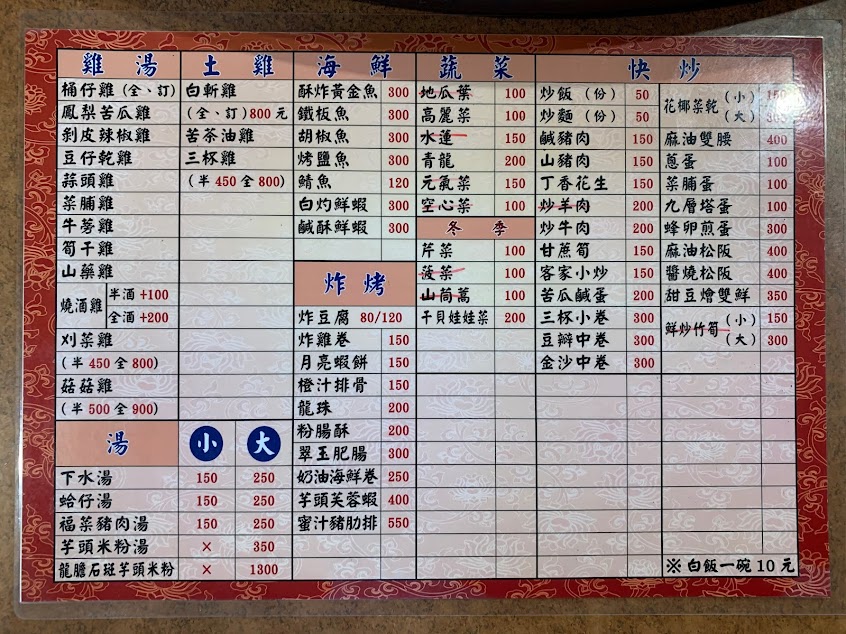 雞湯
桶仔雞(全、訂)
鳳梨苦瓜雞
剝皮辣椒雞
豆仔乾雞
蒜頭雞
菜脯雞
牛蒡雞
筍干雞
山藥雞
燒酒雞 半酒+100
全酒+200
刈菜雞
(半450全800)
菇菇雞
(半500全900)
湯 小 大
下水湯 150 250
蛤仔湯 150 250
福菜豬肉湯 150 250
芋頭米粉湯 × 350
龍膽石斑芋頭米粉 × 1300
土雞
白斬雞
(全、訂)800元
苦茶油雞
三杯雞
(半450全800)
海鮮
酥炸黃金魚 300
鐵板魚 300
胡椒魚 300
烤鹽魚 300
鯖魚 120
白灼鮮蝦 300
鹹酥鮮蝦 300
炸烤
炸豆腐 80/120
炸雞卷 150
月亮蝦餅 150
橙汁排骨 150
龍珠 200
粉腸酥 200
翠玉肥腸 300
奶油海鮮卷 250
芋頭芙蓉蝦 400
蜜汁豬肋排 550
蔬菜
地瓜葉 100
高麗菜 100
水蓮 150
青龍 200
元氣菜 150
空心菜 100
冬季
芹菜 100
菠菜 100
山茼萵 100
干貝娃娃菜 200
快炒
炒飯(份) 50
炒麵(份) 50
鹹豬肉 150
山豬肉 150
丁香花生 150
炒羊肉 200
炒牛肉 200
甘蔗筍 150
客家小炒 150
苦瓜鹹蛋 200
三杯小卷 300
豆瓣中卷 300
金沙中卷 300
花椰菜乾(小) 150
(大) 300
麻油雙腰 400
蔥蛋 100
菜脯蛋 100
九層塔蛋 100
蜂卵煎蛋 300
麻油松阪 400
醬燒松阪 400
甜豆燴雙鮮 350
鮮炒竹筍(小) 150
(大) 300
※白飯一碗10元